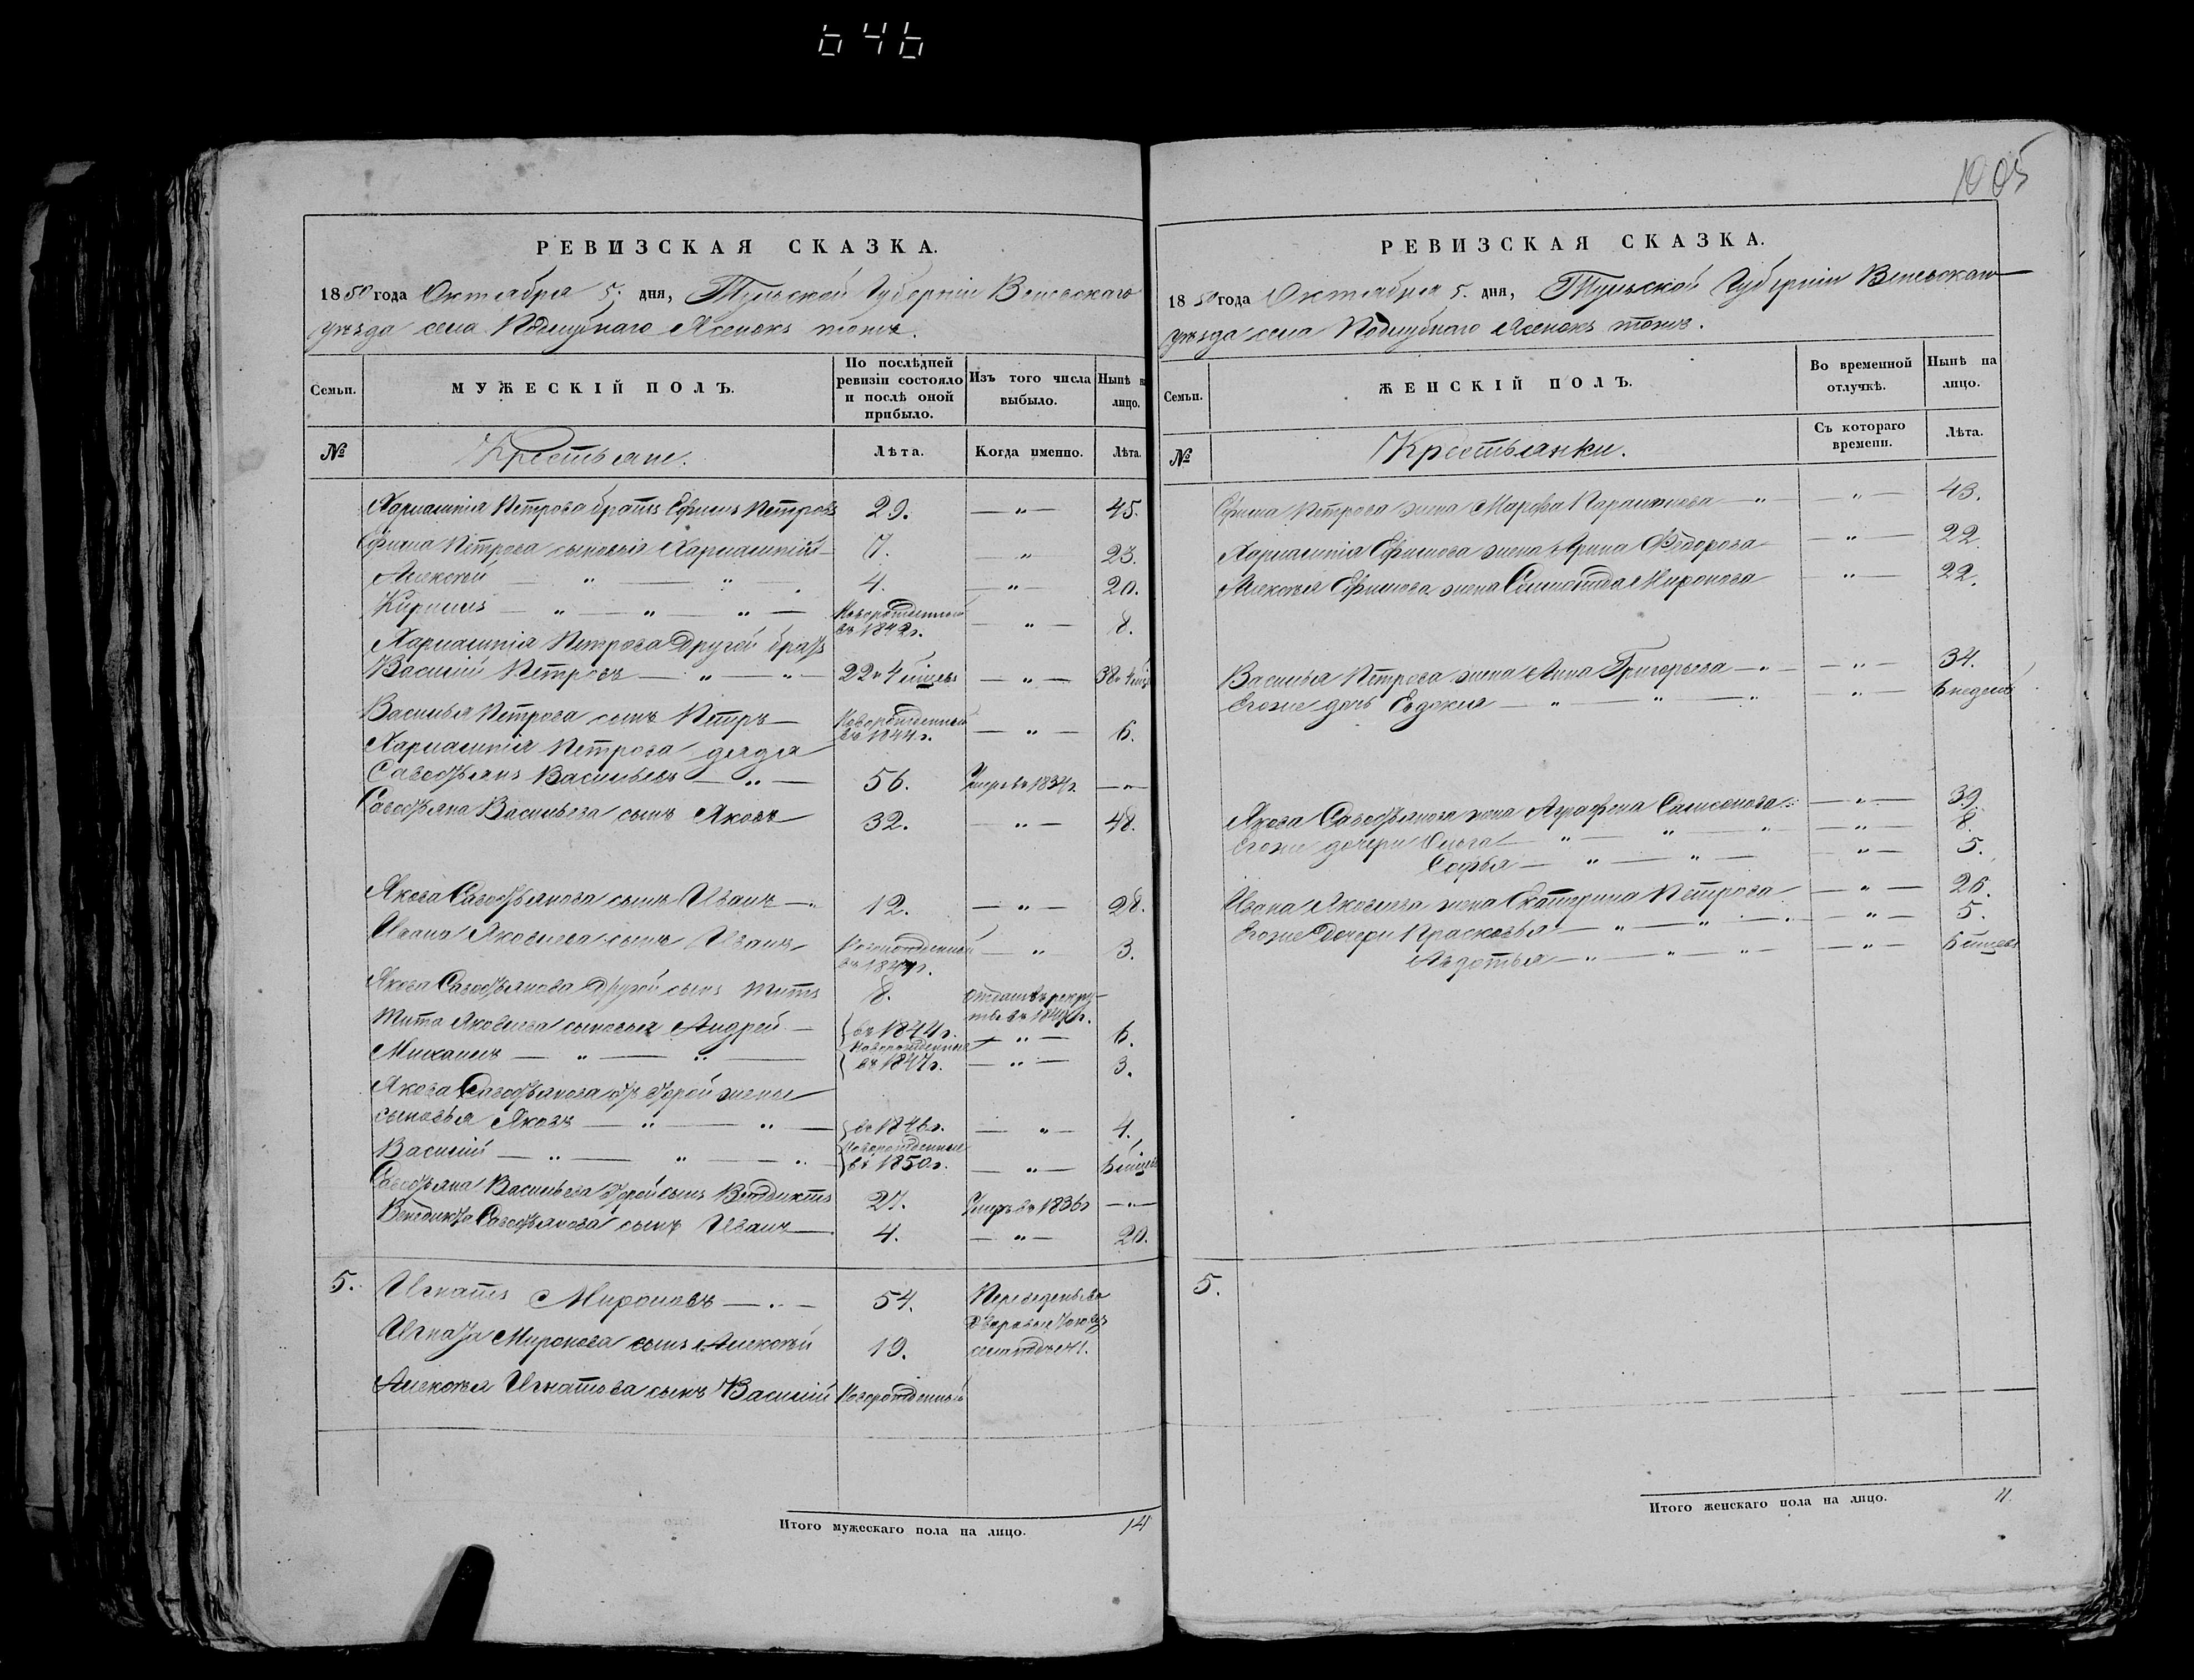 646
1005
РЕВИЗСКАЯ СКАЗКА.
1850 года Октября 5. дня, Тульской Губерніи Веневскаго
уѣзда села Подлубнаго Ясенокъ тожъ.
Семьи.
МУЖЕСКІЙ ПОЛЪ.
По послѣдней ревизіи состояло и послѣ оной прибыло.
Изъ того числа выбыло.
Нынѣ на лицо.
№
Крестьяне.
Лѣта.
Когда именно.
Лѣта.
Харлампія Петрова братъ Ефимъ Петровъ 29. — " — 45.
Ефима Петрова сыновья Харлампій 7. — " 23.
Алексѣй — " — " — 4. — " — 20.
Кирилъ — " — " — " — Новорожденный въ 1842г. — " — 8.
Харлампія Петрова другой братъ
Василій Петровъ — " — " — 22 и 4 мѣс. — " — 38 и 4 мѣс.
Василья Петрова сынъ Петръ — Новорожденный въ 1844г. — " — 6.
Харлампія Петрова дядя
Савостьянъ Васильевъ — " — 56. Умеръ въ 1834г. — " —
Савостьяна Васильева сынъ Яковъ 32. — " — 48.
Якова Савостьянова сынъ Иванъ — " 12. — " — 28.
Ивана Яковлева сынъ Иванъ Новорожденный въ 1847г. — " 3.
Якова Савостьянова другой сынъ Титъ 8. Отданъ въ рекруты
Тита Яковлева сыновья Андрей — въ 1844г. — " — 6.
Михаилъ — " — " — Новорожденные въ 1847г. — " — 3.
Якова Савостьянова отъ второй жены
сыновья Яковъ — " — " — въ 1846г. — " — 4.
Василій — " — " — " Новорожденные въ 1850г. — " — 6 мѣс.
Савостьяна Васильева второй сынъ Венедиктъ 27. Умеръ въ 1836г. — " —
Венедикта Савостьянова сынъ Иванъ — 4. — " — 20.
5. Игнатъ Мироновъ — " — 54. Переведены въ
дворовые
Игната Миронова сынъ Алексѣй 19.
Алексѣя Игнатова сынъ Василій Новорожденный
Итого мужескаго пола на лицо. 14
РЕВИЗСКАЯ СКАЗКА.
1850 года Октября 5. дня, Тульской Губерніи Веневскаго
уѣзда села Подлубнаго Ясенокъ тожъ.
Семьи.
ЖЕНСКІЙ ПОЛЪ.
Во временной отлучкѣ.
Нынѣ на лицо.
№
Крестьянки.
Съ котораго времени.
Лѣта.
Ефима Петрова жена Марфа — " — " — 43.
Харлампія Ефимова жена Арина Федорова — " — 22.
Алексѣя Ефимова жена Миронова " — 22.
Василья Петрова жена Анна Григорьева — " — " — 34.
Егоже дочь Евдокия — " — " — " — " — 6 недель
Якова Савостьянова жена Аграфена Самсонова — " — 39.
Егоже дочери Ольга — " — " — " — " — 8.
Софья — " — " — " — 5.
Ивана Яковлева жена Екатерина Петрова — " — 26.
Егоже дочери Прасковья — " — " — " — " — 5.
Авдотья — " — " — " — " — 6 мѣс.
5.
Итого женскаго пола на лицо. 11.